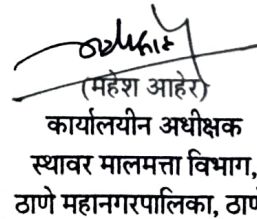 (महेश आहेर)
कार्यालयीन अधीक्षक
स्थावर मालमत्ता विभाग,
ठाणे महानगरपालिका,